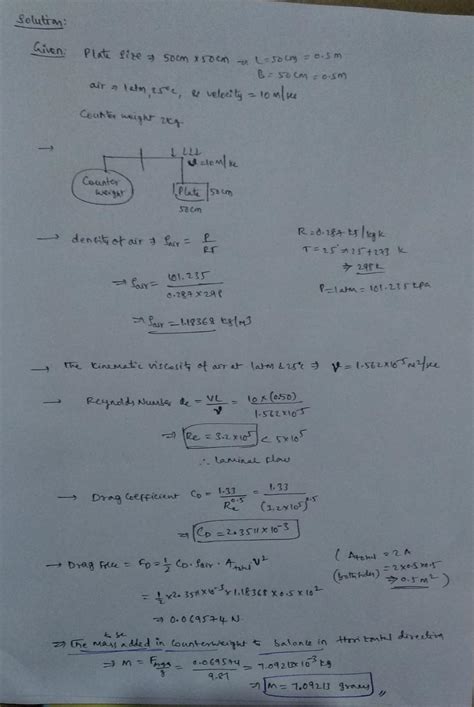 Solution:
Given: Plate size ⇒ 50cm × 50cm ⇒ L=50cm = 0.5m
B = 50cm = 0.5m
air ⇒ 1atm, 25°c, & velocity = 10 m/sec
Counter weight 2kg.
→
V=10m/sec
Counter weight
Plate 50cm
50cm
→ density of air ⇒ ρair = P/RT
R=0.287 kJ/kgk
T = 25° ⇒ 25+273 k
⇒ 298k
P=1atm = 101.235 kpa
⇒ ρair = 101.235 / 0.287×298
⇒ ρair = 1.18368 kg/m3
→ The kinematic viscosity of air at 1atm & 25°c ⇒ ν = 1.562×10^-5 m2/sec
→ Reynolds Number Re = VL/ν = 10×(0.50) / 1.562×10^-5
⇒ Re = 3.2×10^5 < 5×10^5
∴ laminar flow
→ Drag coefficient CD = 1.33/Re^0.5 = 1.33/(3.2×10^5)^0.5
⇒ CD = 2.3511×10^-3
→ Drag Force = FD = 1/2 CD. ρair. Atotal V^2
(Atotal = 2A
(Both sides) = 2×0.5×0.5
⇒ 0.5m^2)
= 1/2 × 2.3511×10^-3 × 1.18368 × 0.5 × 10^2
⇒ 0.069574 N.
⇒ The mass to be added in counterweight to balance in Horizontal direction
⇒ M = / g = 0.069574 / 9.81 = 7.09213×10^-3 kg
⇒ M = 7.09213 grams